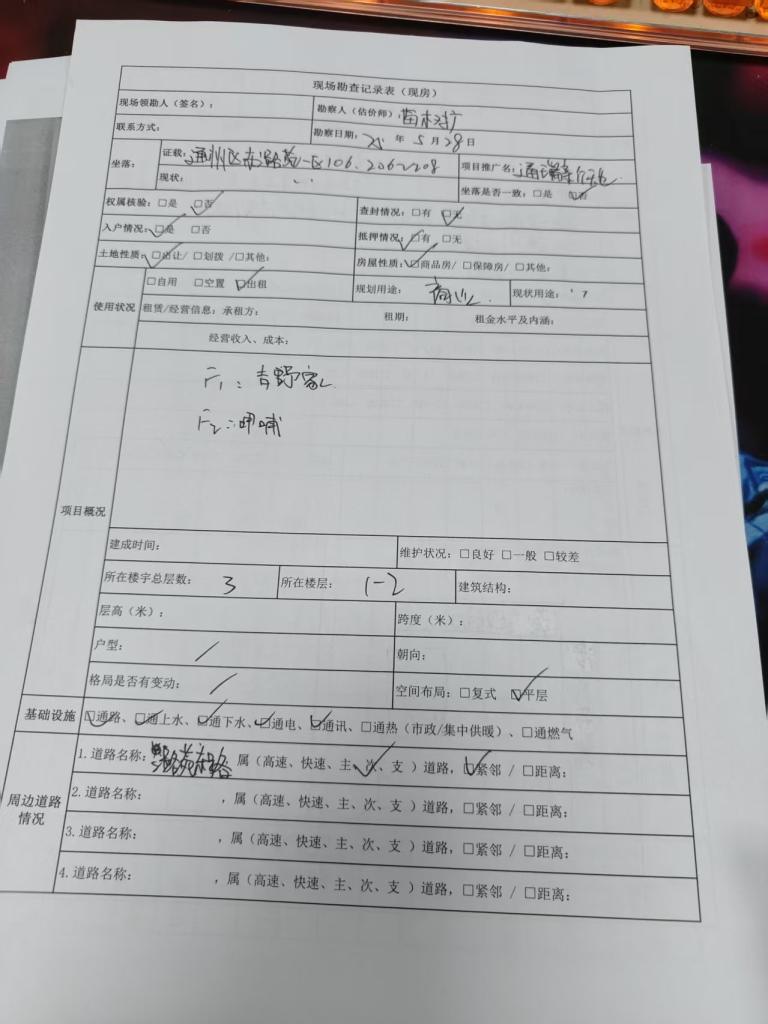 现场勘查记录表（现房）
现场领勘人（签名）： 勘察人（估价师）：苗
联系方式： 勘察日期：25 年 5 月 28 日
坐落： 证载：通州区 一区106、206~208 项目推广名：通瑞
现状： 、、 坐落是否一致：□是 ☑否
权属核验：□是 ☑否 查封情况：□有 ☑无
入户情况：☑是 □否 抵押情况：☑有 □无
土地性质：☑出让/ □划拨 /□其他： 房屋性质：☑商品房/ □保障房/ □其他：
使用状况 □自用 □空置 ☑出租 规划用途：商业 现状用途：
租赁/经营信息：承租方： 租期： 租金水平及内涵：
经营收入、成本：
项目概况
F1：吉野家
F2：呷哺
建成时间： 维护状况：□良好 □一般 □较差
所在楼宇总层数： 3 所在楼层： 1-2 建筑结构：
层高（米）： 跨度（米）：
户型： / 朝向：
格局是否有变动： / 空间布局：□复式 ☑平层
基础设施 ☑通路、☑通上水、☑通下水、☑通电、☑通讯、□通热（市政/集中供暖）、□通燃气
周边道路情况
1.道路名称： ，属（高速、快速、主、次、支 ）道路，☑紧邻 / □距离：
2.道路名称： ，属（高速、快速、主、次、支 ）道路，□紧邻 / □距离：
3.道路名称： ，属（高速、快速、主、次、支 ）道路，□紧邻 / □距离：
4.道路名称： ，属（高速、快速、主、次、支 ）道路，□紧邻 / □距离：